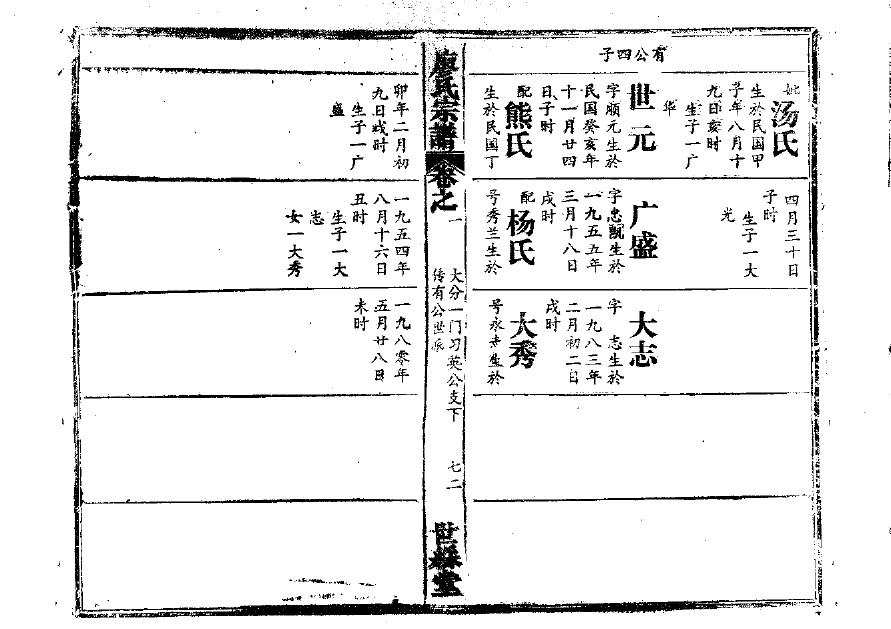 有公四子
妣
汤氏
生於民国甲
子年八月十
九日亥时
生子一广
华
世元
字顺元生於
民国癸亥年
十一月廿四
日子时
配
熊氏
生於民国丁
四月三十日
子时
生子一大
光
广盛
字忠凯生於
一九五五年
三月十八日
戌时
配
杨氏
号秀兰生於
大志
字 志生於
一九八三年
二月初二日
戌时
大秀
号永 生於
廖氏宗谱
卷之一
大分一门习英公支下
传有公世系
七二
世綵堂
卯年二月初
九日戌时
生子一广
盛
一九五四年
八月十六日
丑时
生子一大
志
女一大秀
一九八零年
五月廿八日
未时